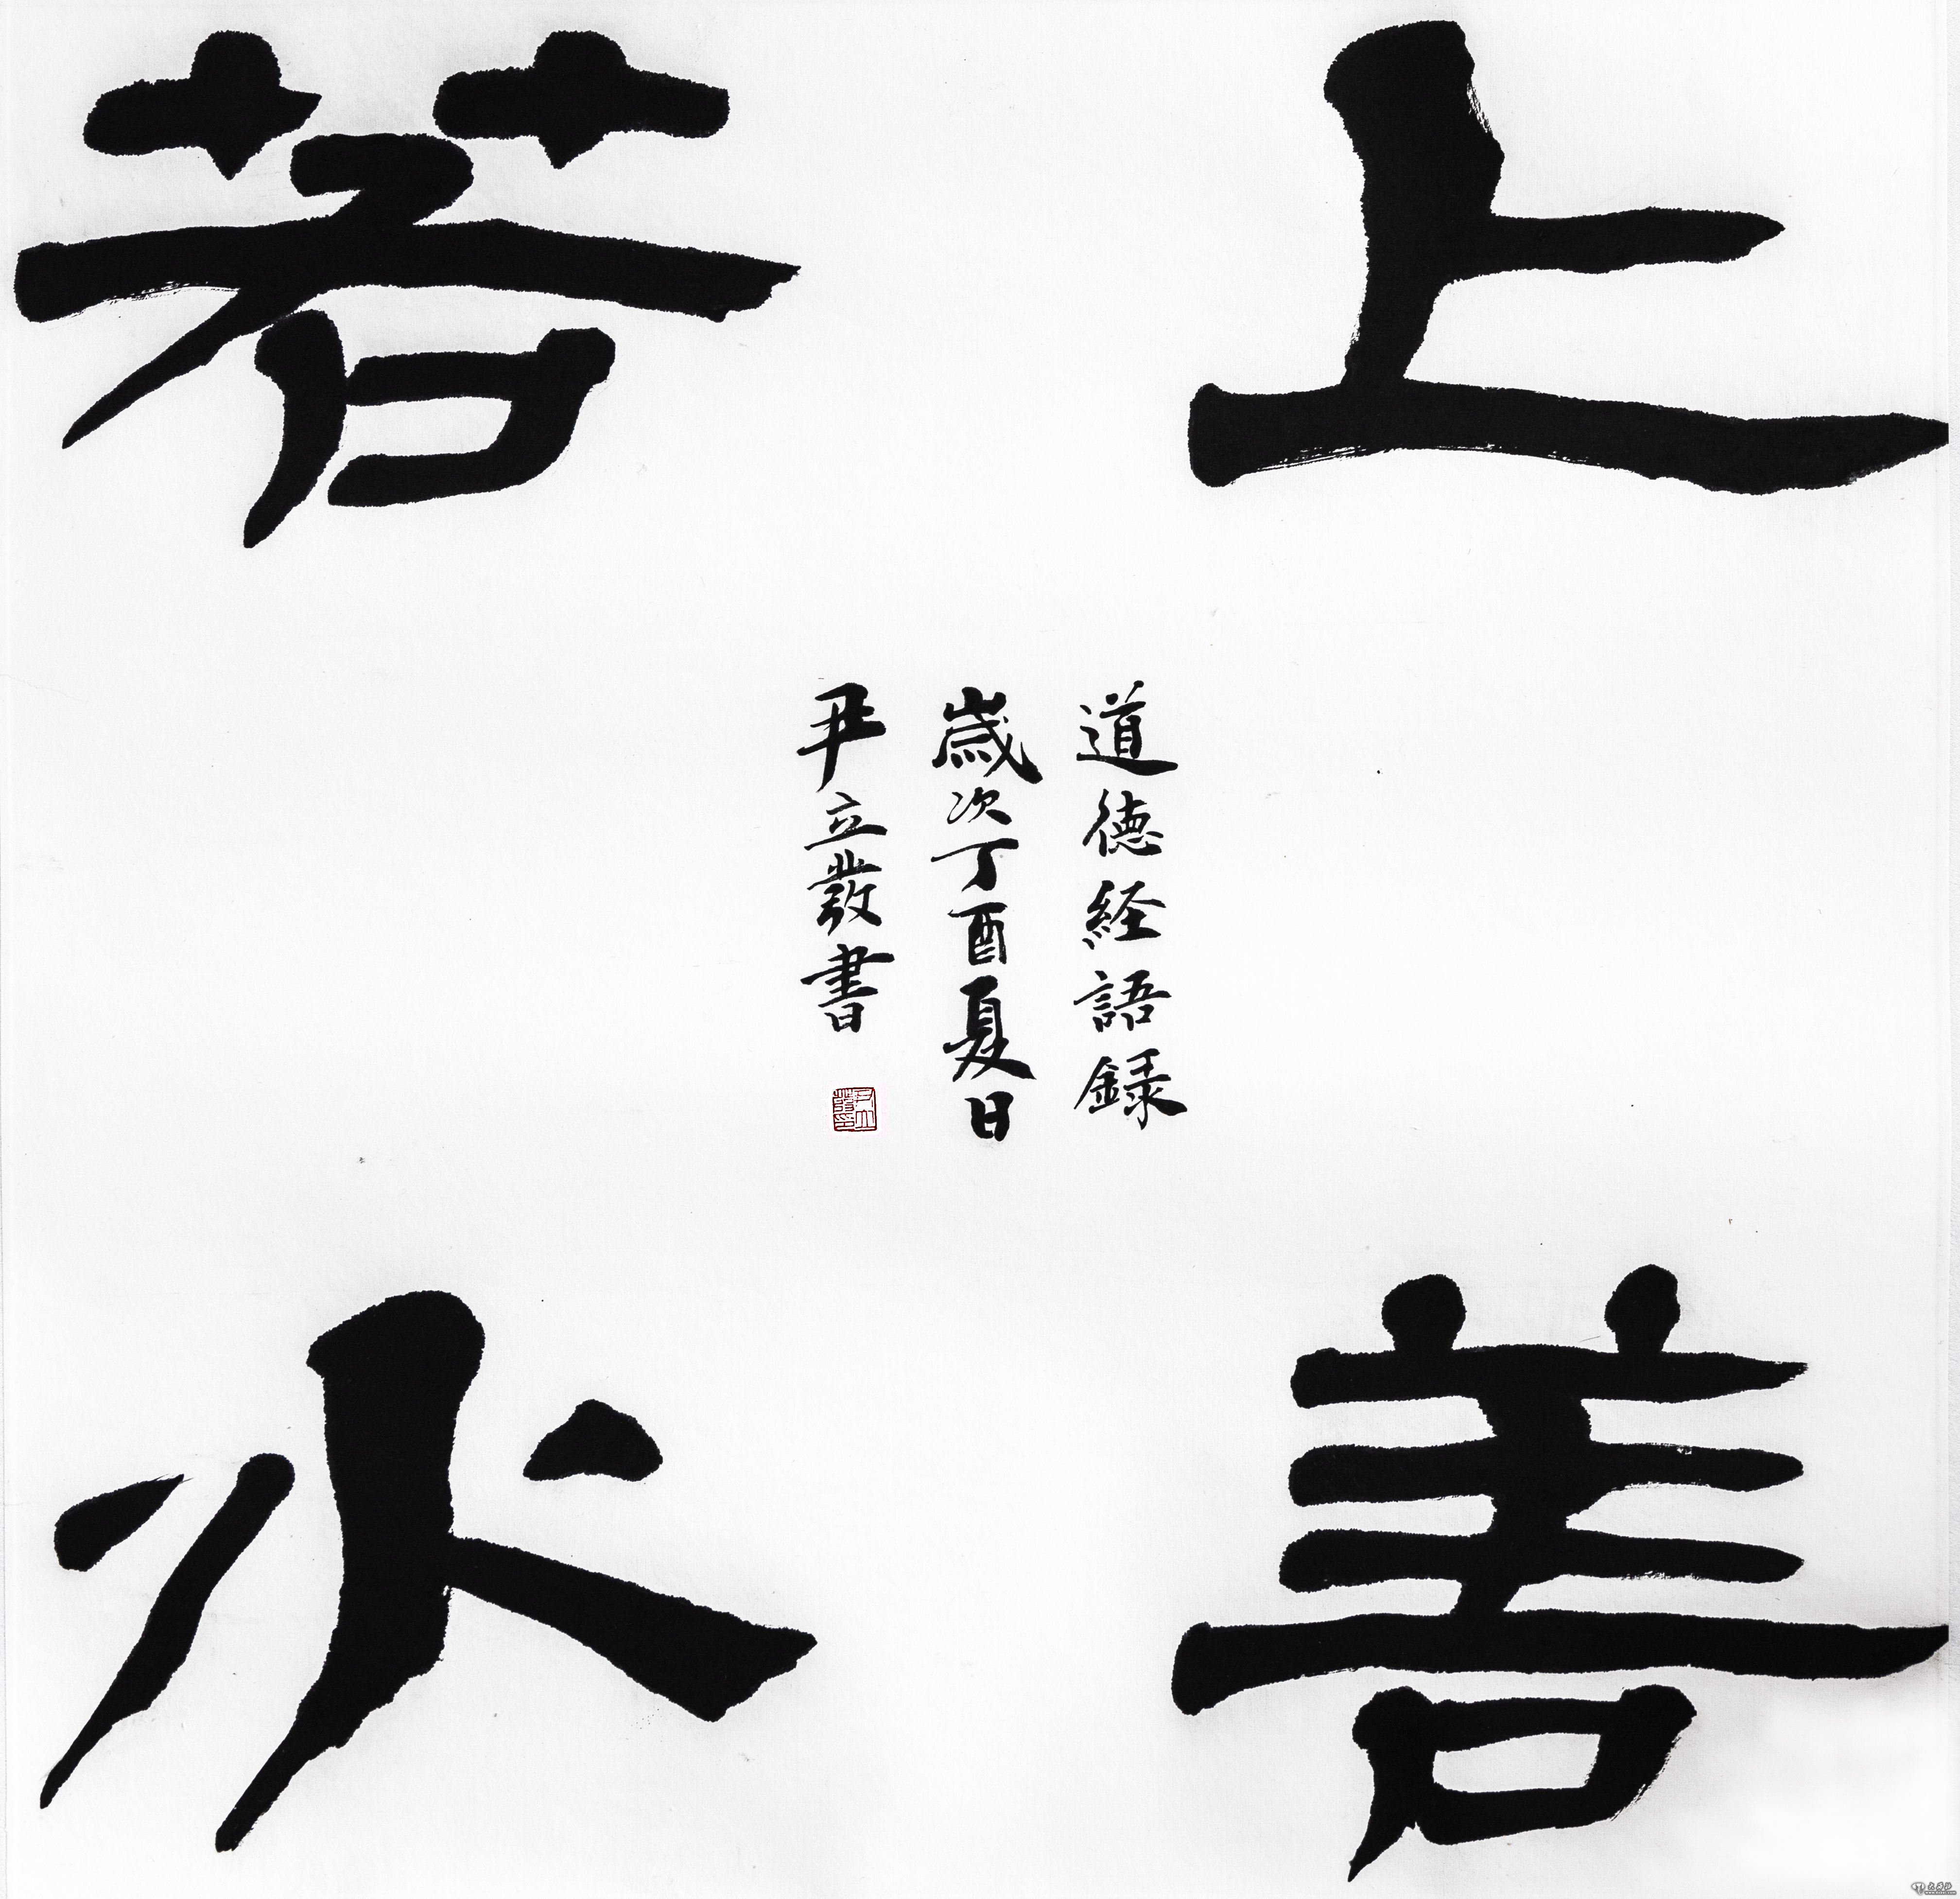 上善
若水
道德経語録
歳次丁酉夏日
尹立發書